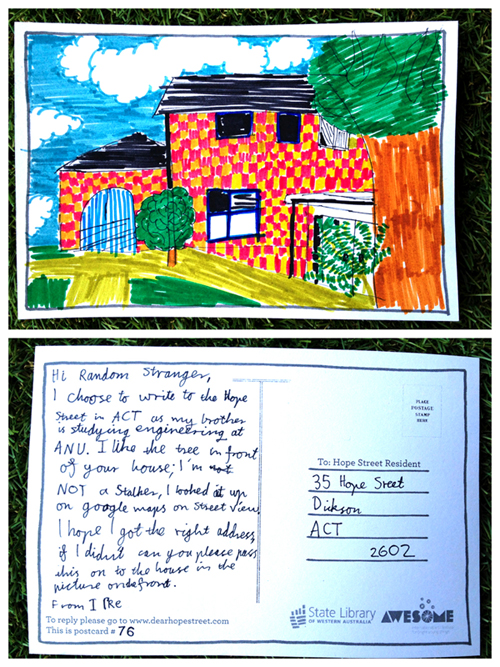 Hi Random Stranger,
I choose to write to the Hope
Street in ACT as my brother
is studying engineering at
ANU. I like the tree in front
of your house; I'm not
NOT a Stalker, I looked it up
on google maps on Street view
I hope I got the right address
if I didn't can you please pass
this on to the house in the
picture on the front.
From Ike
To reply please go to www.dearhopestreet.com
This is postcard # 76
PLACE
POSTAGE
STAMP
HERE
To: Hope Street Resident
35 Hope Street
Dickson
ACT
2602
State Library
OF WESTERN AUSTRALIA
AWESOME